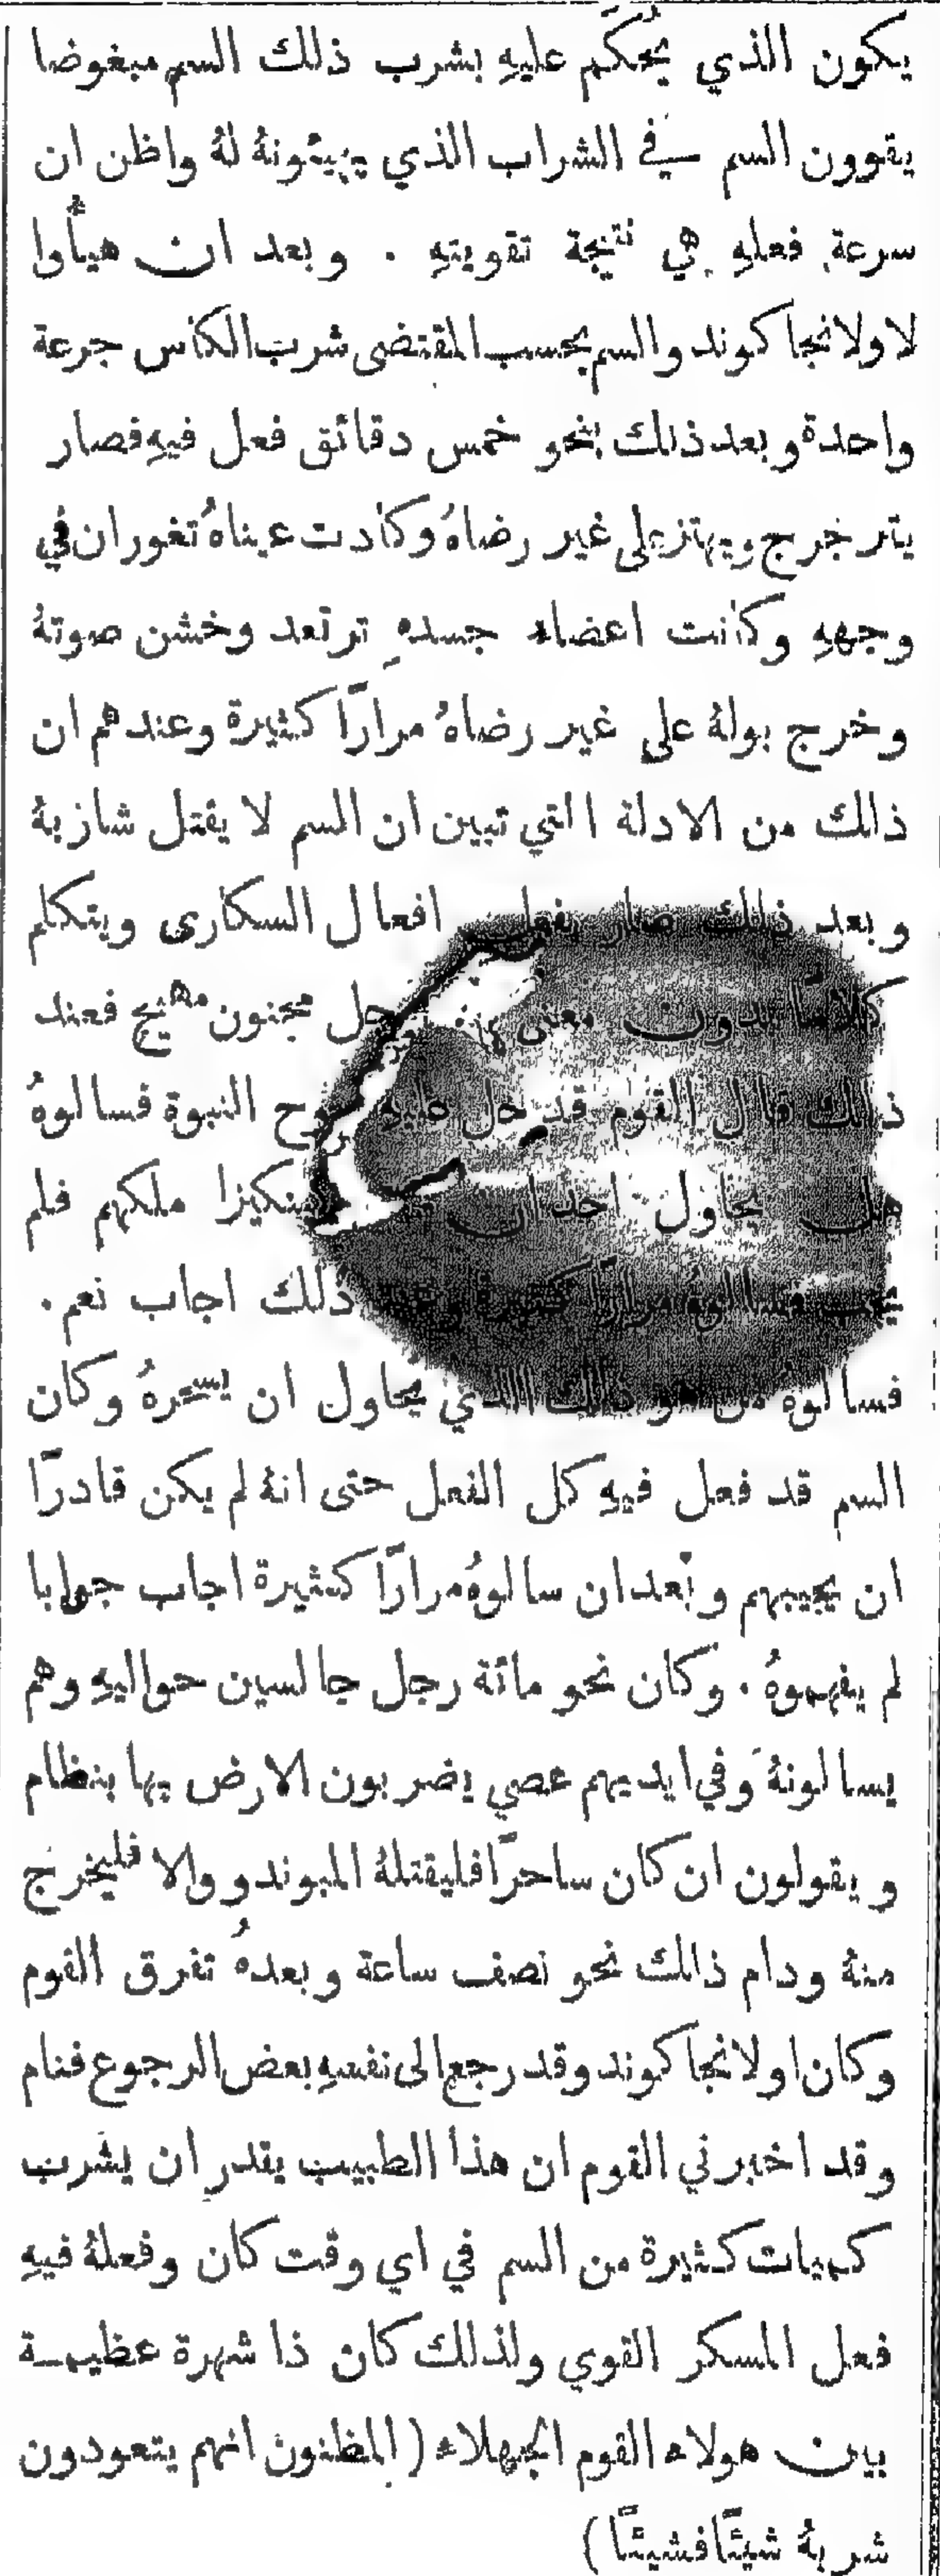 يكون الذي يُحكَم عليهِ بشرب ذلك السم مبغوضا
يقوون السم في الشراب الذي يهيئونهُ لهُ واظن ان
سرعة فعلهِ هي نتيجة تقويتهِ . وبعد ان هيأُوا
لاولانجاكوند والسم بحسب المقتضى شرب الكأس جرعة
واحدة وبعد ذلك بنحو خمس دقائق فعل فيهِ فصار
يترجرج ويهتز على غير رضاهُ وكادت عيناهُ تغوران في
وجههِ وكانت اعضاء جسدهِ ترتعد وخشن صوتهُ
وخرج بولهُ على غير رضاهُ مرارًا كثيرة وعندهم ان
ذلك من الادلة التي تبين ان السم لا يقتل شاربهُ
وبعد ذلك صار يفعل افعال السكارى ويتكلم
كلامًا بدون معنى مجنون مهيج فعند
ذلك قال القوم قد حل عليهِ روح النبوة فسالوهُ
هل يحاول احد ان ملكهم فلم
يجب فسالوهُ مرارًا كثيرة وعند ذلك اجاب نعم .
فسالوهُ من هو ذلك الذي يحاول ان يسحرهُ وكان
السم قد فعل فيهِ كل الفعل حتى انهُ لم يكن قادرًا
ان يجيبهم وبعد ان سالوهُ مرارًا كثيرة اجاب جوابا
لم يفهموهُ . وكان نحو مائة رجل جالسين حواليهِ وهم
يسالونهُ وفي ايديهم عصي يضربون الارض بها بنظام
ويقولون ان كان ساحرًا فليقتلهُ المبوندو والا فليخرج
منهُ ودام ذلك نحو نصف ساعة وبعدهُ تفرق القوم
وكان اولانجاكوند وقد رجع الى نفسهِ بعض الرجوع فنام
وقد اخبرني القوم ان هذا الطبيب يقدر ان يشرب
كميات كثيرة من السم في اي وقت كان وفعلهُ فيهِ
فعل المسكر القوي ولذلك كان ذا شهرة عظيمة
بين هولاء القوم الجهلاء ( المظنون انهم يتعودون
شربهُ شيئًا فشيئًا )